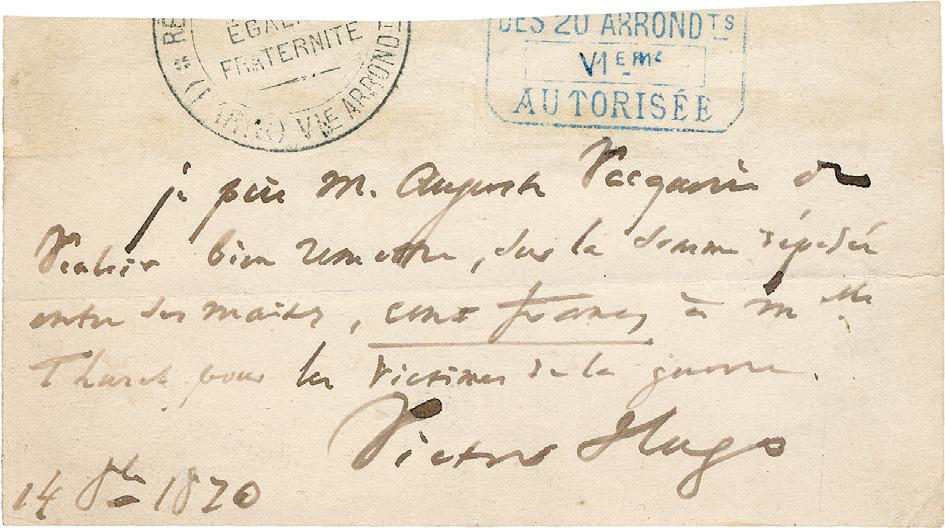 ÉGALI
FRATERNITÉ
VIE ARRONDT
DES 20 ARRONDTS
VIEME
AUTORISÉE
je prie M. Auguste Vacquerie de
vouloir bien remettre, sur la somme déposée
entre ses mains, cent francs à Mlle
pour les victimes de la guerre.
Victor Hugo
14 8bre 1870